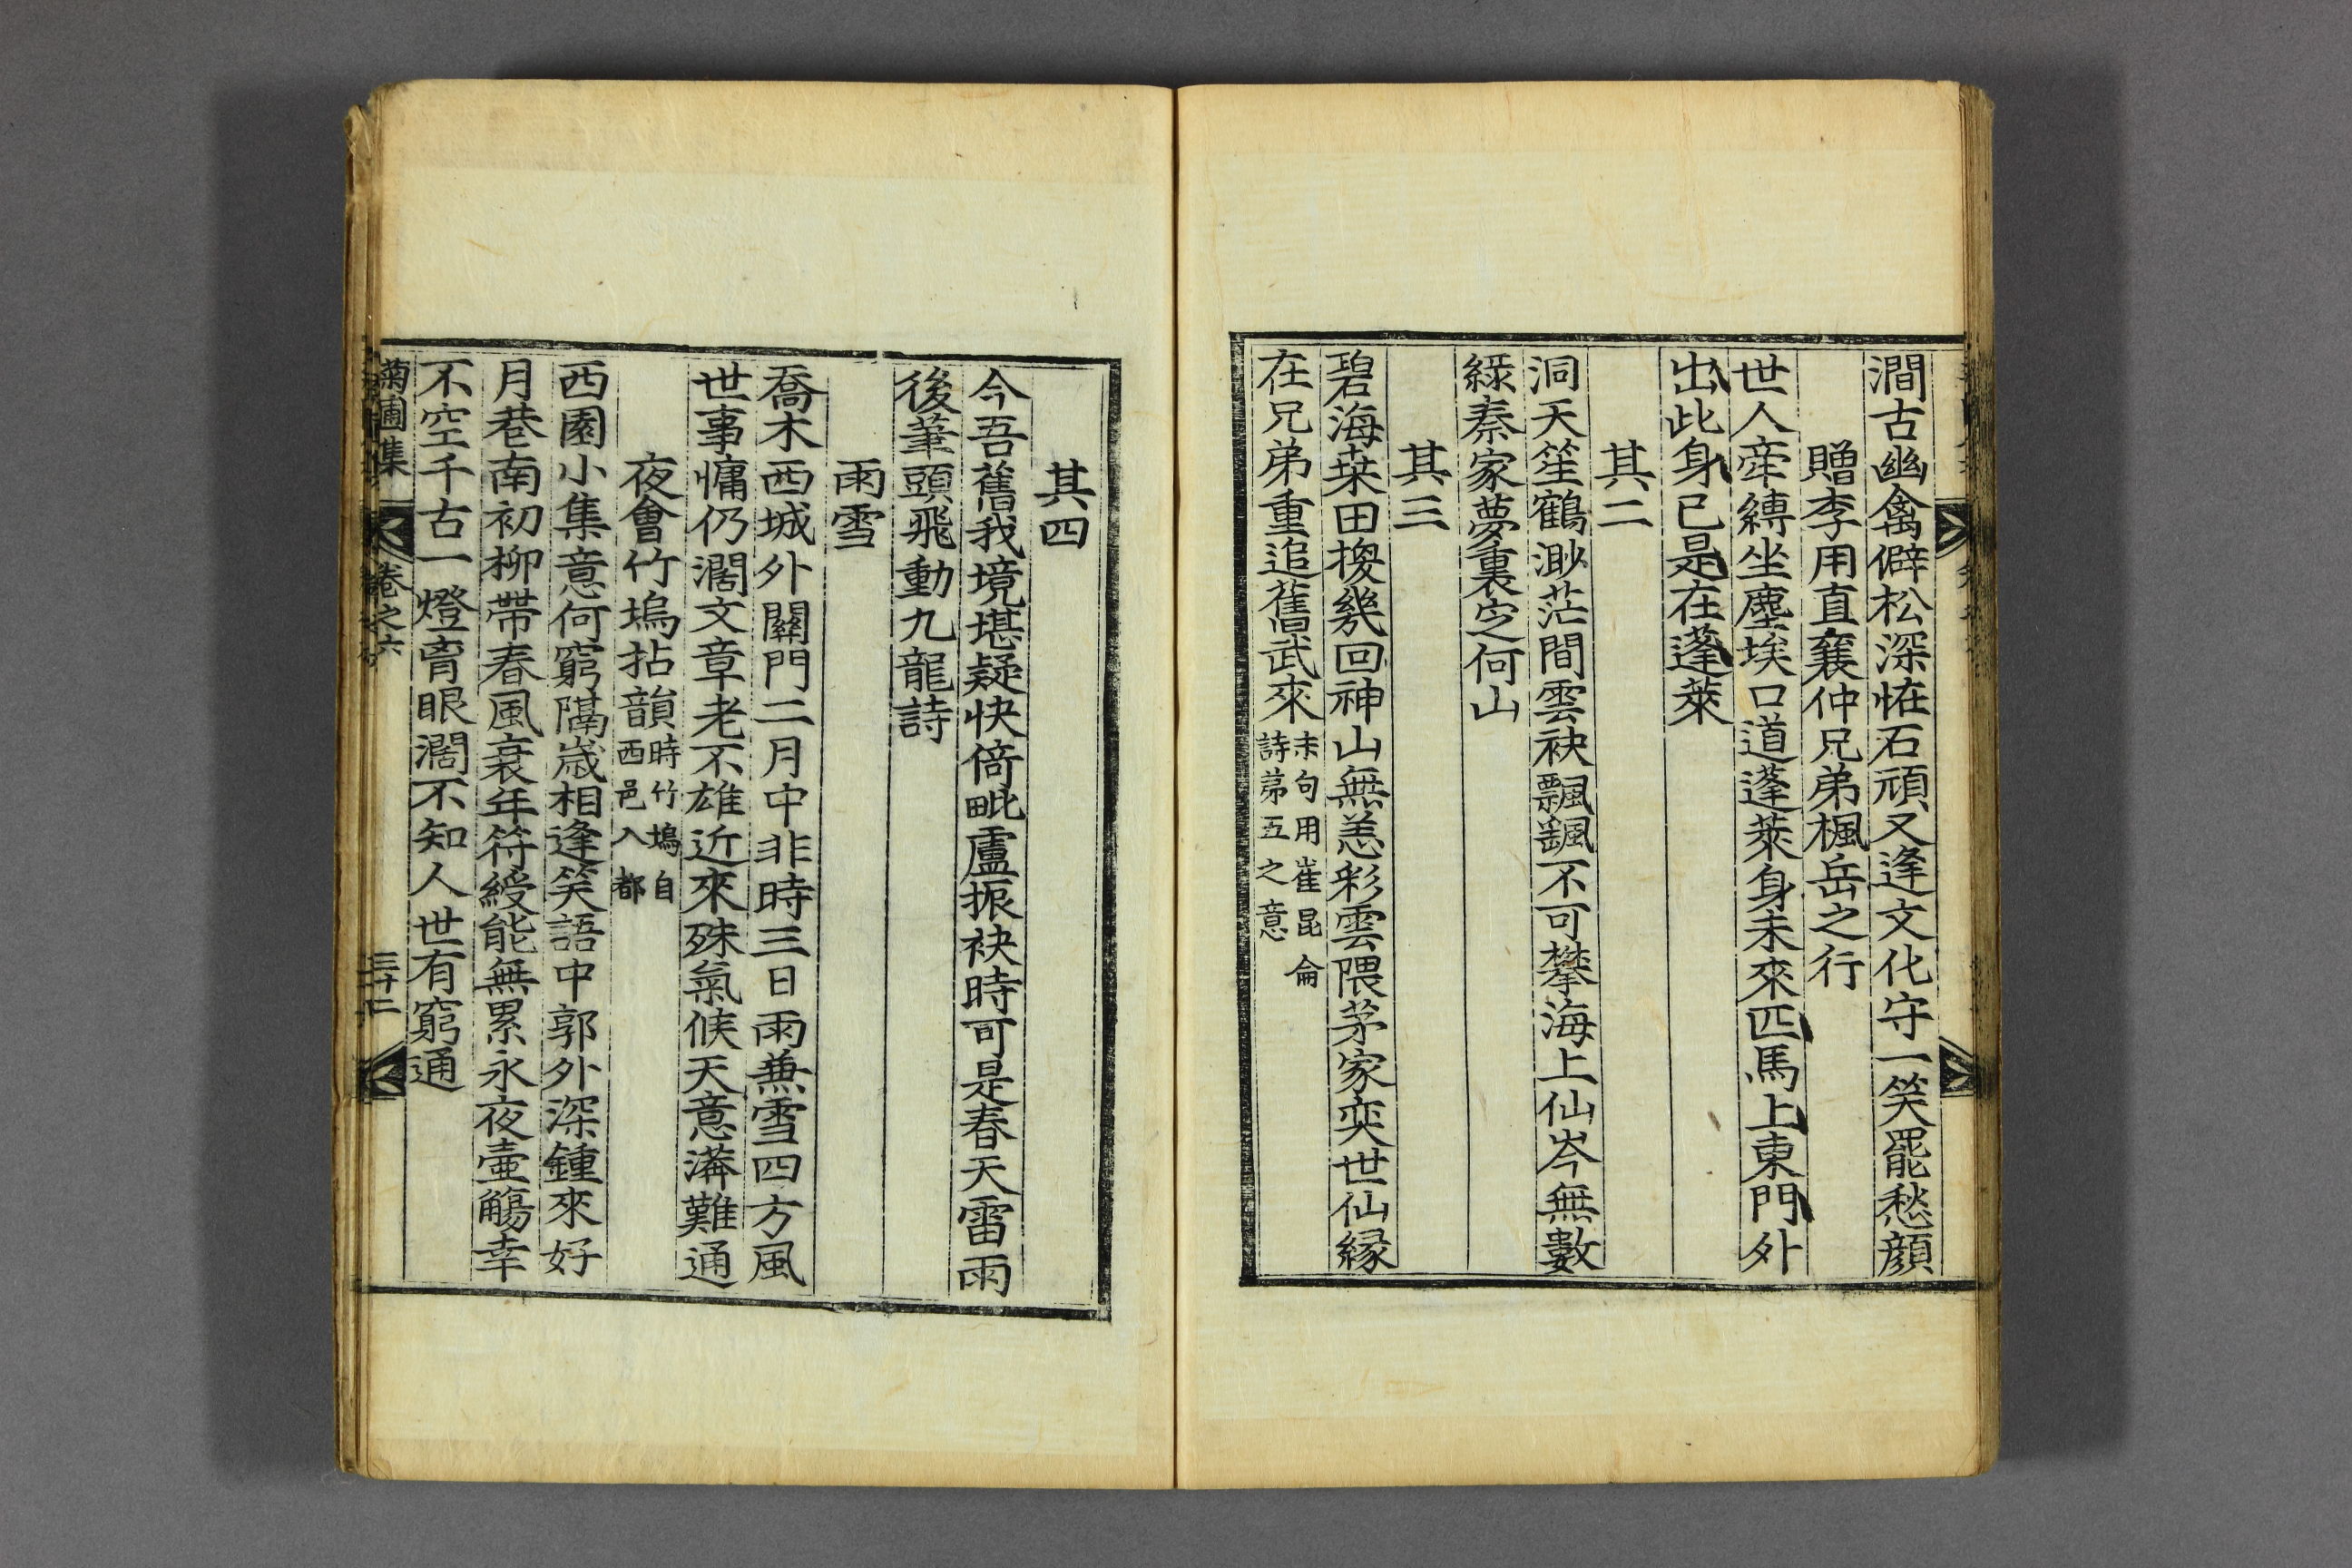 澗古幽禽僻松深恠石頑又逢文化守一笑罷愁顔
贈李用直襄仲兄弟楓岳之行
世人牽縛坐塵埃口道蓬萊身未來匹馬上東門外
出此身已是在蓬萊
其二
洞天笙鶴渺茫間雲袂飄颻不可攀海上仙岑無數
綠秦家夢裏定何山
其三
碧海桒田換幾回神山無恙彩雲隈茅家奕世仙緣
在兄弟重追舊武來
末句用崔昆侖
詩苐五之意
其四
今吾舊我境堪疑快倚毗盧振袂時可是春天雷雨
後筆頭飛動九龍詩
雨雪
喬木西城外關門二月中非時三日雨兼雪四方風
世事慵仍濶文章老不雄近來殊氣候天意漭難通
夜會竹塢拈韻
時竹塢自
西邑入都
西園小集意何窮隔歲相逢笑語中郭外深鍾來好
月巷南初柳帶春風衰年符綬能無累永夜壺觴幸
不空千古一燈脔眼濶不知人世有窮通
菊圃集
卷之六
三十二